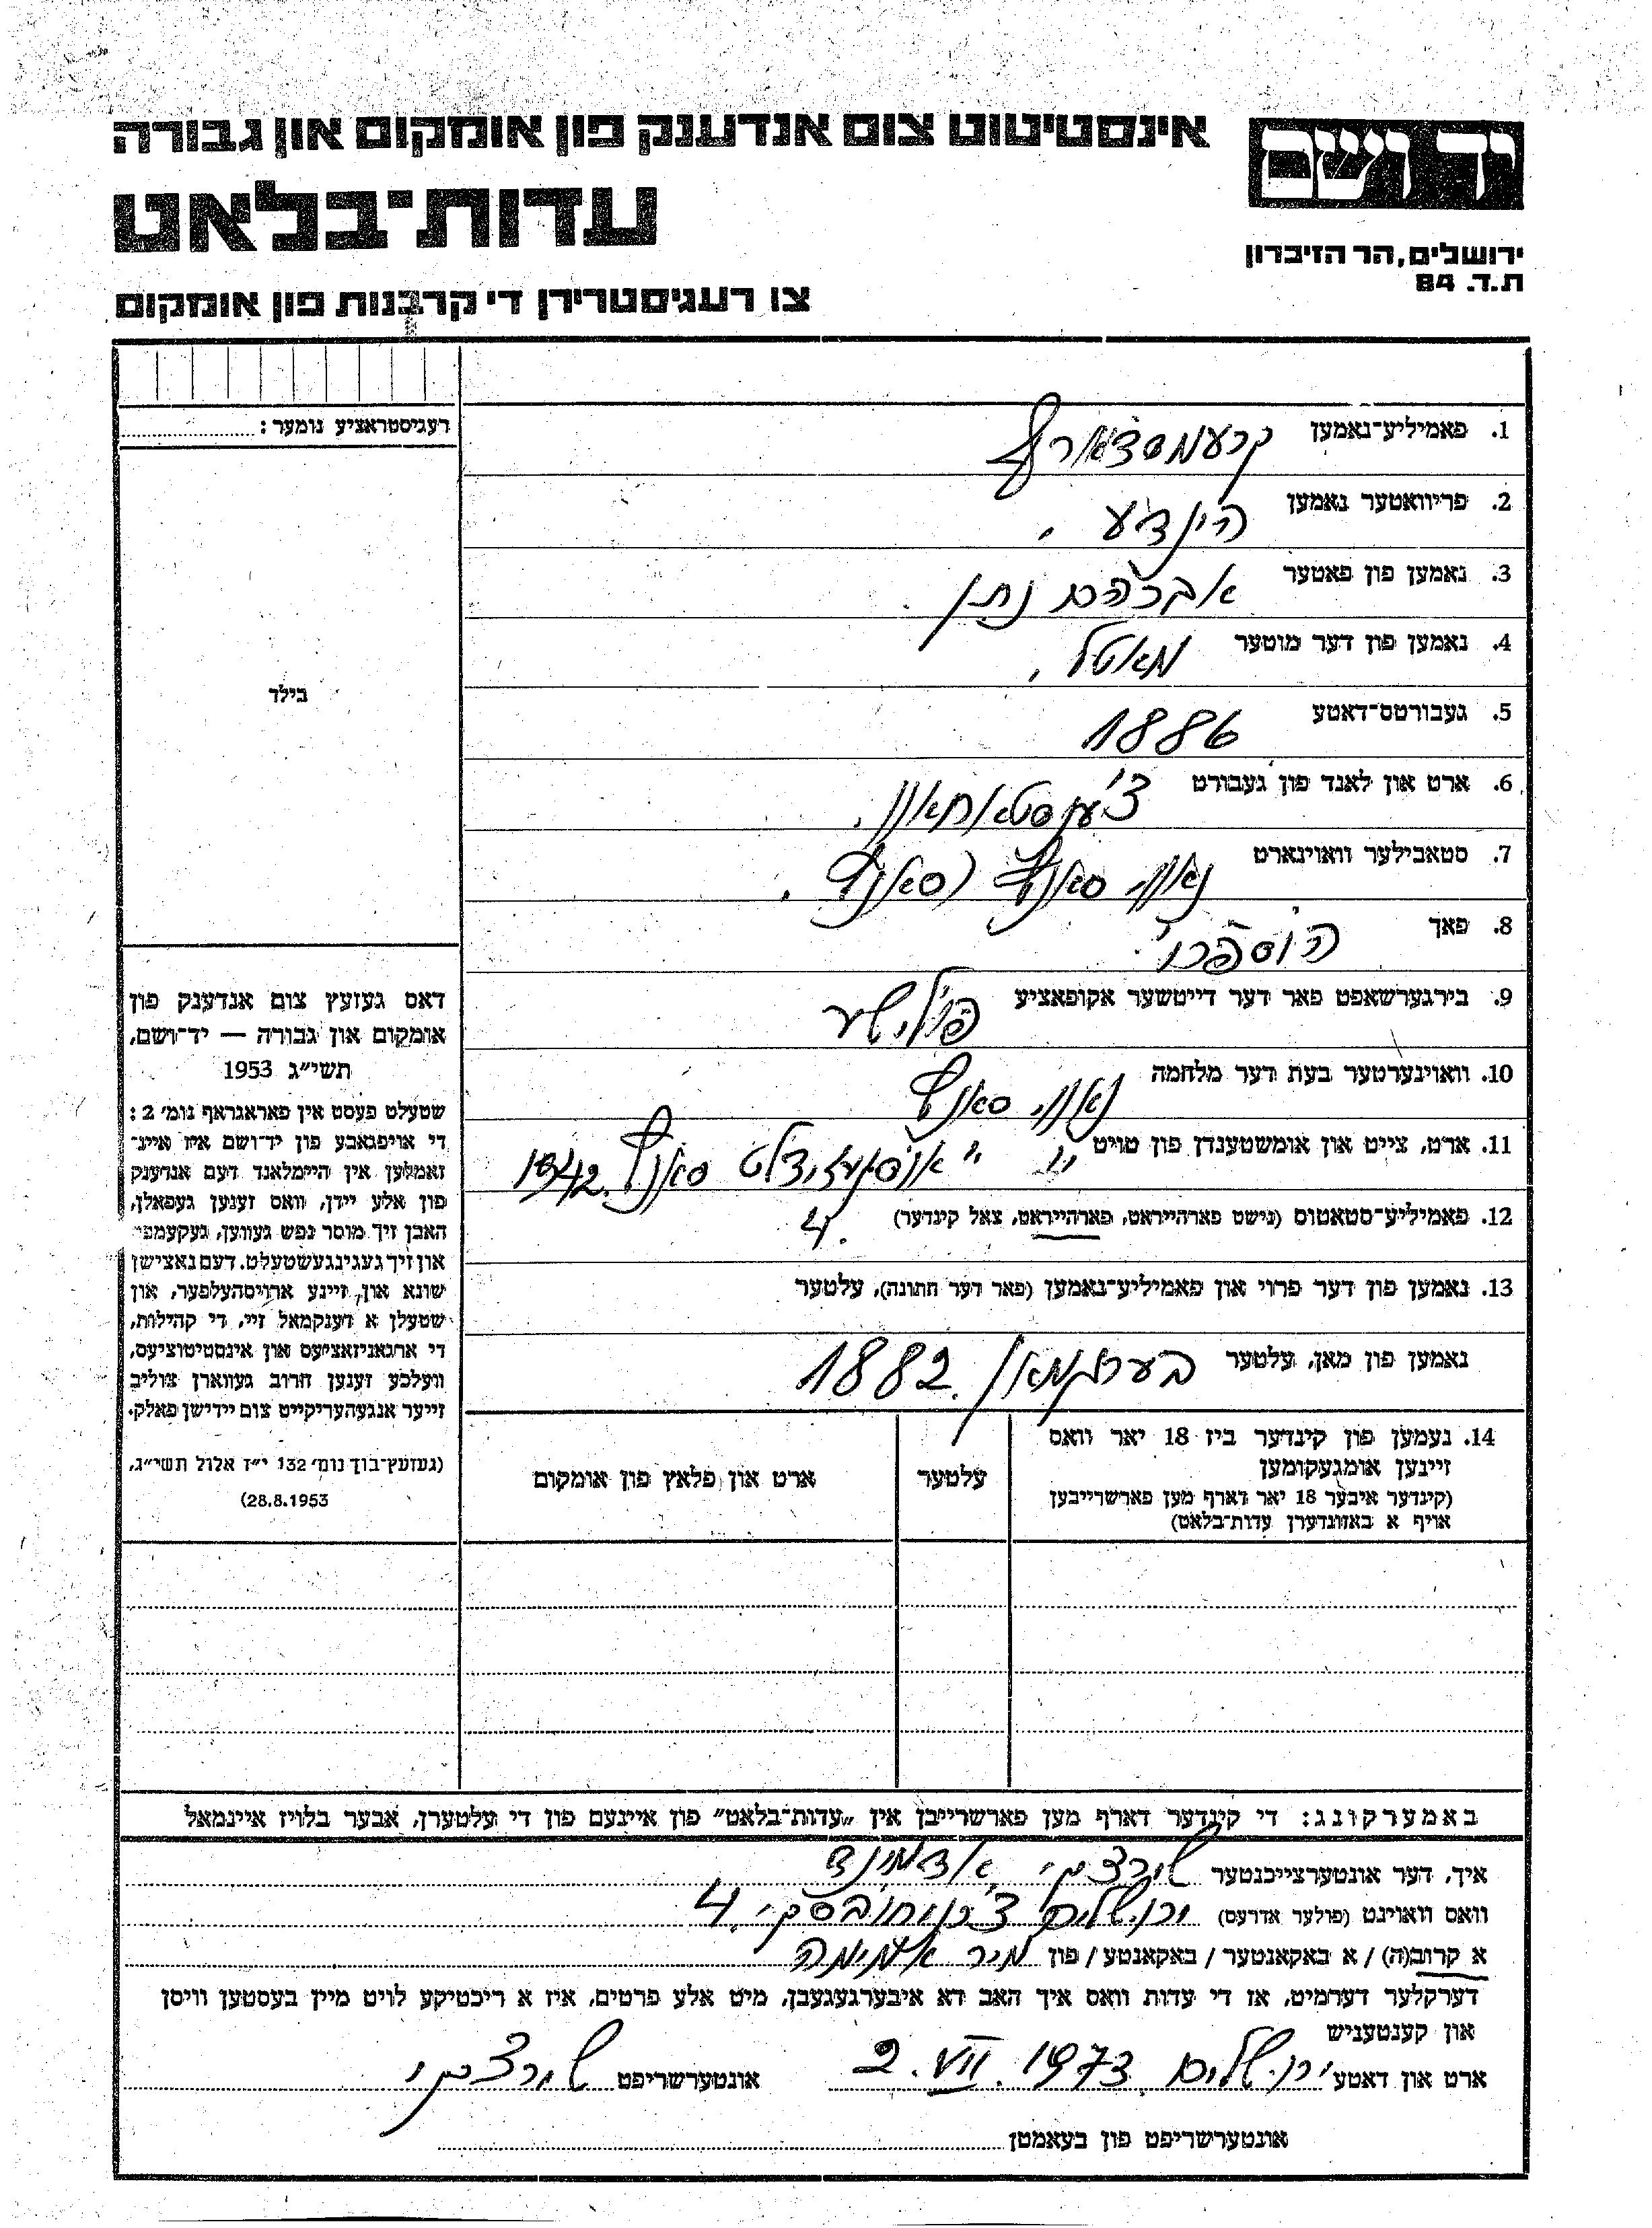 יד ושם
אינסטיטוט צום אנדענק פון אומקום און גבורה
עדות־בלאט
ירושלים, הר הזיכרון
ת.ד. 84
צו רעגיסטרירן די קרבנות פון אומקום
רעגיסטראציע נומער:
בילד
1. פאמיליע־נאמען
2. פריוואטער נאמען הינדע
3. נאמען פון פאטער אברהם נתן
4. נאמען פון דער מוטער מאטל
5. געבורטס־דאטע 1886
6. ארט און לאנד פון געבורט
7. סטאבילער וואוינארט נאווי סאנץ (סאנץ
8. פאך
9. בירגערשאפט פאר דער דייטשער אקופאציע פוילישע
10. וואוינערטער בעת דער מלחמה נאווי סאנץ
11. ארט, צייט און אומשטענדן פון טויט סאנץ 1942
12. פאמיליע־סטאטוס (נישט פארהייראט, פארהייראט, צאל קינדער) 4
13. נאמען פון דער פרוי און פאמיליע־נאמען (פאר דער חתונה), עלטער
נאמען פון מאן, עלטער 1882
14. נעמען פון קינדער ביז 18 יאר וואס
זיינען אומגעקומען
(קינדער איבער 18 יאר דארף מען פארשרייבן
אויף א באזונדערן עדות־בלאט)
עלטער
ארט און פלאץ פון אומקום
דאס געזעץ צום אנדענק פון
אומקום און גבורה — יד־ושם,
תשי״ג 1953
שטעלט פעסט אין פאראגראף נומ׳ 2:
די אויפגאבע פון יד־ושם איז איינ־
זאמלען אין היימלאנד דעם אנדענק
פון אלע יידן, וואס זענען געפאלן,
האבן זיך מוסר נפש געווען, געקעמפט
און זיך געגינגעשטעלט. דעם נאצישן
שונא און זיינע ארויסהעלפער, און
שטעלן א דענקמאל זיי, די קהילות,
די ארגאניזאציעס און אינסטיטוציעס,
וועלכע זענען חרוב געווארן צוליב
זייער אנגעהעריקייט צום יידישן פאלק.
(געזעץ־בוך נומ׳ 132 י״ז אלול תשי״ג,
28.8.1953)
באמערקונג: די קינדער דארף מען פארשרייבן אין „עדות־בלאט״ פון איינעם פון די עלטערן, אבער בלויז איינמאל
איך, דער אונטערצייכנטער
וואס וואוינט (פולער אדרעס) ירושלים 4
א קרוב(ה) / א באקאנטער / באקאנטע / פון
דערקלער דערמיט, אז די עדות וואס איך האב דא איבערגעגעבן, מיט אלע פרטים, איז א ריכטיקע לויט מיין בעסטען וויסן
און קענטעניש
ארט און דאטע ירושלים 2. VII. 1973 אונטערשריפט
אונטערשריפט פון בעאמטן